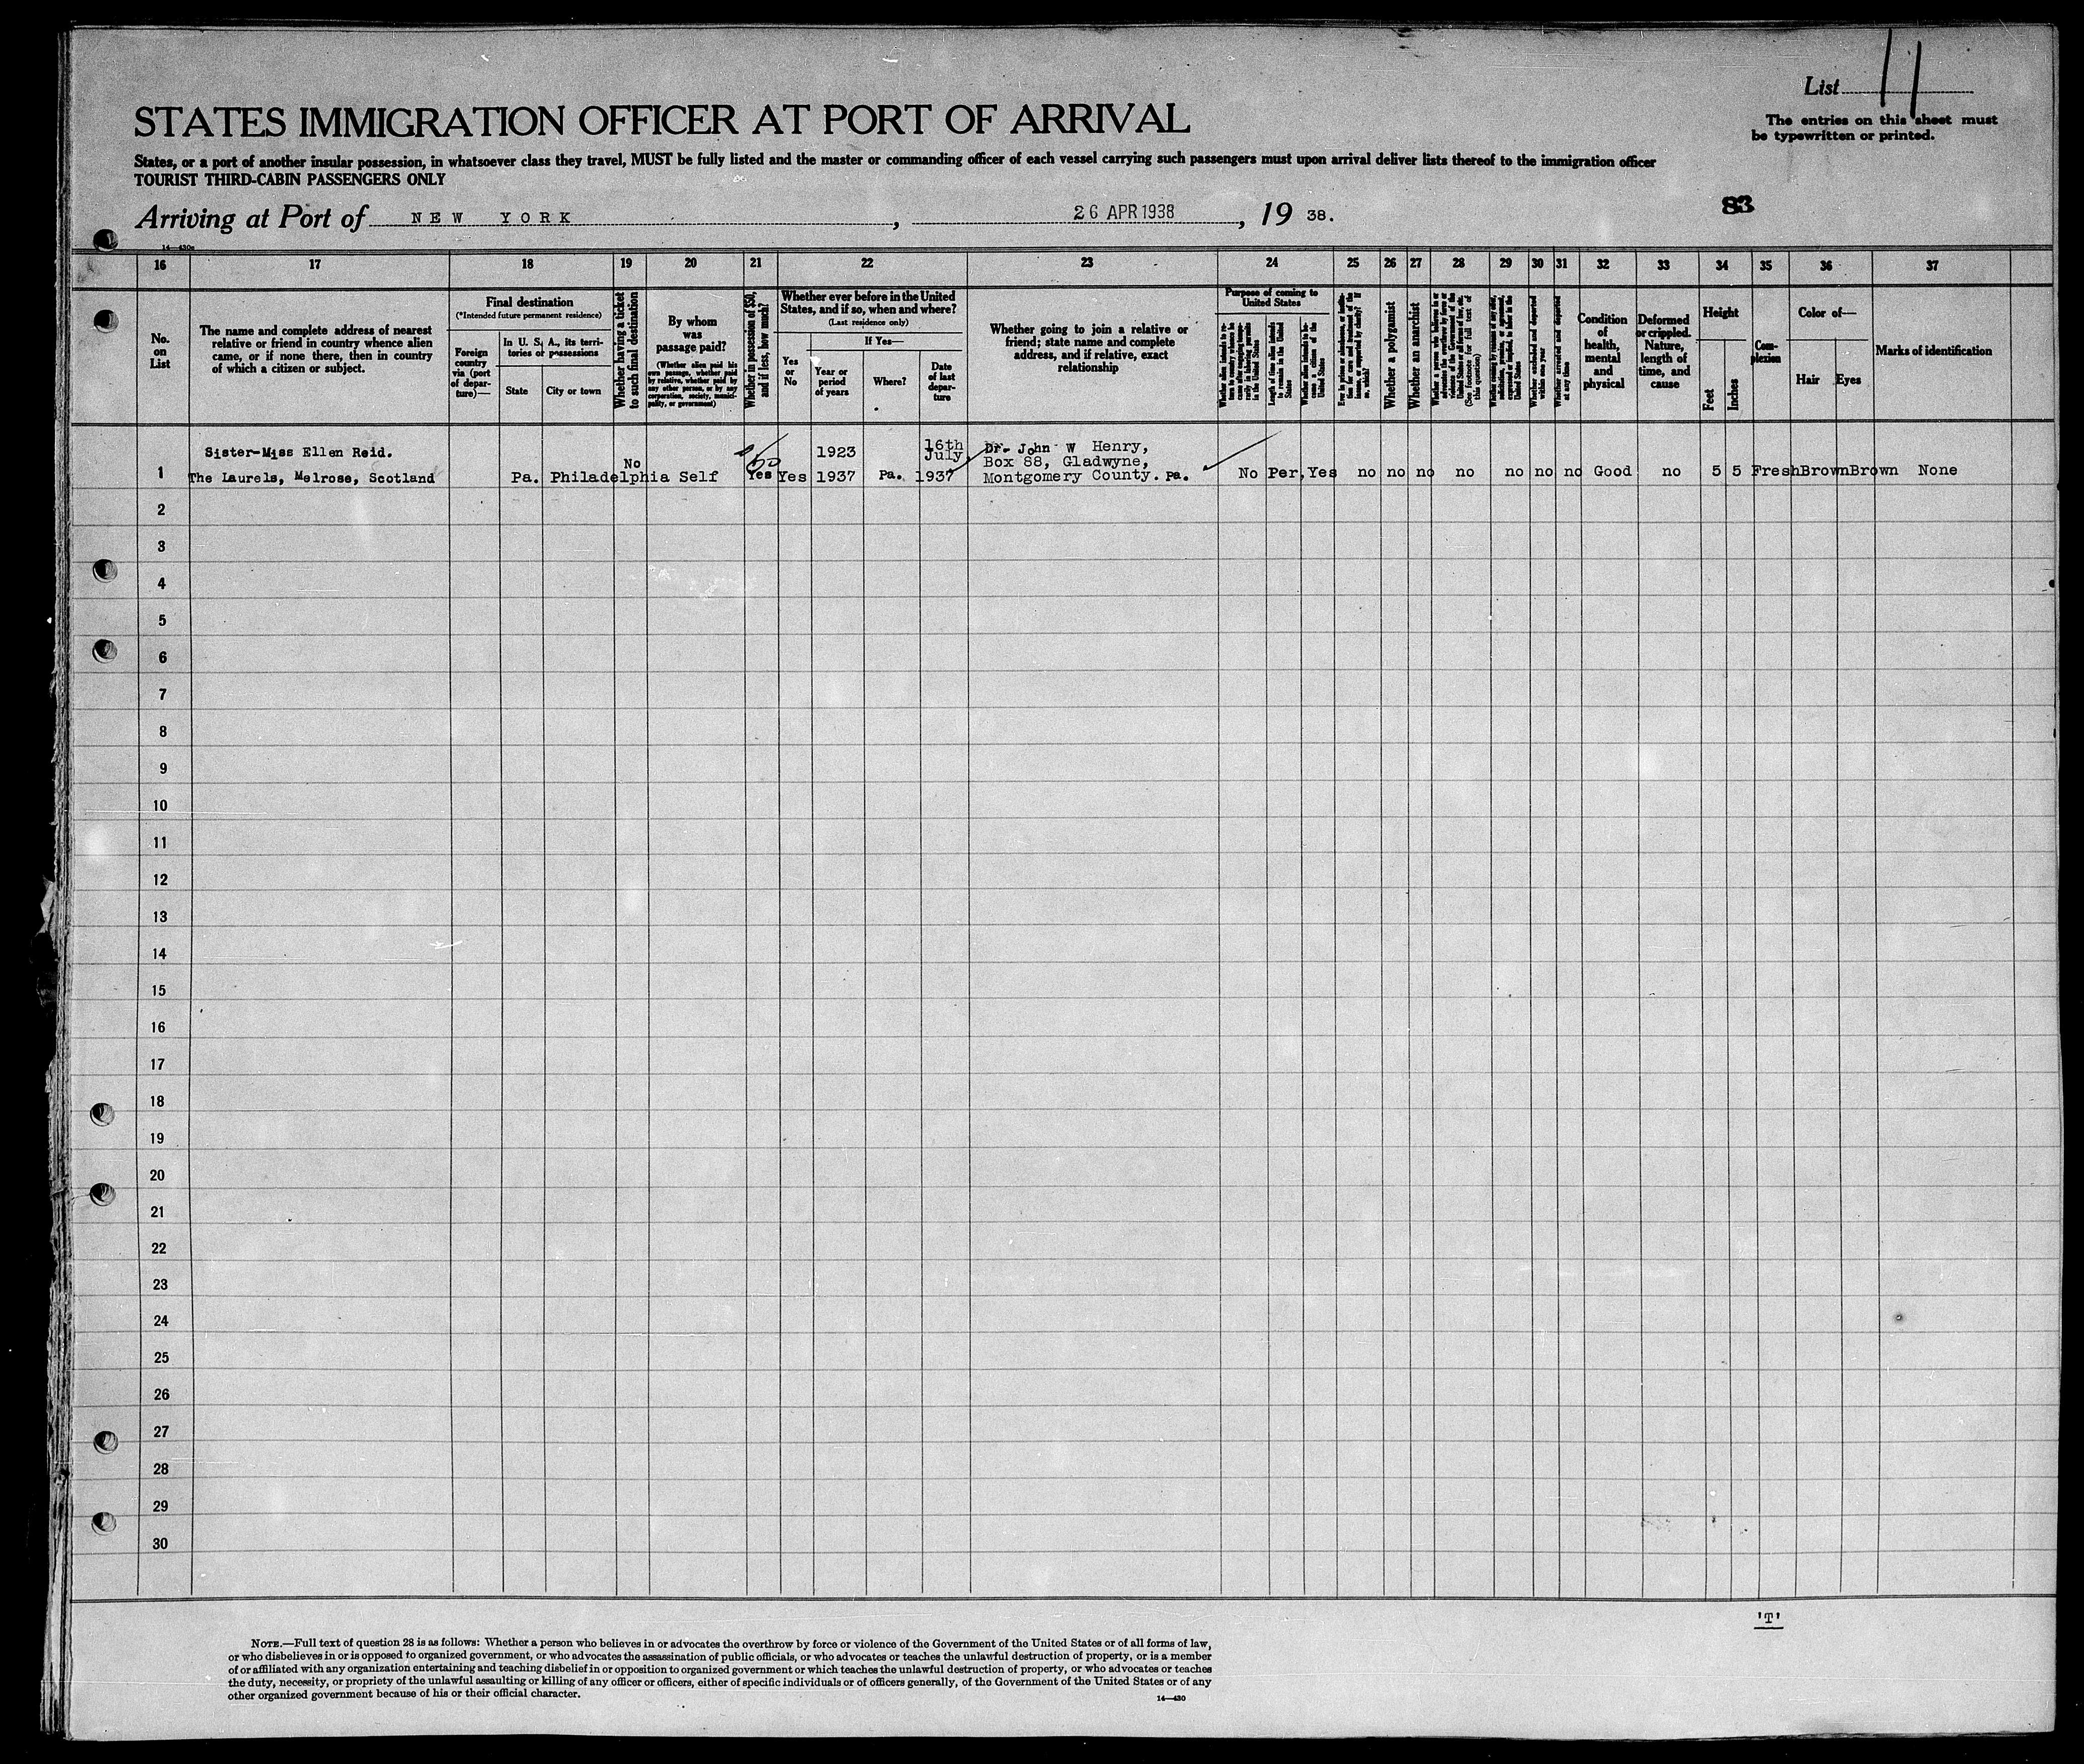 List 11
The entries on this sheet must
be typewritten or printed.
STATES IMMIGRATION OFFICER AT PORT OF ARRIVAL
States, or a port of another insular possession, in whatsoever class they travel, MUST be fully listed and the master or commanding officer of each vessel carrying such passengers must upon arrival deliver lists thereof to the immigration officer
TOURIST THIRD-CABIN PASSENGERS ONLY
83
Arriving at Port of NEW YORK, 26 APR 1938, 19 38.
14—430a
16 17 18 19 20 21 22 23 24 25 26 27 28 29 30 31 32 33 34 35 36 37
No.
on
List
The name and complete address of nearest
relative or friend in country whence alien
came, or if none there, then in country
of which a citizen or subject.
Final destination
(*Intended future permanent residence)
Foreign
country
via (port
of depar-
ture)—
In U. S. A., its terri-
tories or possessions
State
City or town
Whether having a ticket
to such final destination
By whom
was
passage paid?
(Whether alien paid his
own passage, whether paid
by relative, whether paid by
any other person, or by any
corporation, society, munici-
pality, or government)
Whether in possession of $50,
and if less, how much?
Whether ever before in the United
States, and if so, when and where?
(Last residence only)
Yes
or
No
If Yes—
Year or
period
of years
Where?
Date
of last
depar-
ture
Whether going to join a relative or
friend; state name and complete
address, and if relative, exact
relationship
Purpose of coming to
United States
Length of time alien intends
to remain in the United
States
Whether alien intends to be-
come a citizen of the
United States
Whether a polygamist
Whether an anarchist
(See footnote for full text of
this question)
Whether excluded and deported
within one year
Whether arrested and deported
at any time
Condition
of
health,
mental
and
physical
Deformed
or crippled.
Nature,
length of
time, and
cause
Height
Feet
Inches
Com-
plexion
Color of—
Hair
Eyes
Marks of identification
Sister-Miss Ellen Reid. 1923 16th July Dr- John W Henry,
No Box 88, Gladwyne,
1 The Laurels, Melrose, Scotland Pa. Philadelphia Self Yes Yes 1937 Pa. 1937 Montgomery County. Pa. No Per, Yes no no no no no no no Good no 5 5 Fresh Brown Brown None
2
3
4
5
6
7
8
9
10
11
12
13
14
15
16
17
18
19
20
21
22
23
24
25
26
27
28
29
30
'T'
NOTE.—Full text of question 28 is as follows: Whether a person who believes in or advocates the overthrow by force or violence of the Government of the United States or of all forms of law,
or who disbelieves in or is opposed to organized government, or who advocates the assassination of public officials, or who advocates or teaches the unlawful destruction of property, or is a member
of or affiliated with any organization entertaining and teaching disbelief in or opposition to organized government or which teaches the unlawful destruction of property, or who advocates or teaches
the duty, necessity, or propriety of the unlawful assaulting or killing of any officer or officers, either of specific individuals or of officers generally, of the Government of the United States or of any
other organized government because of his or their official character.
14—430